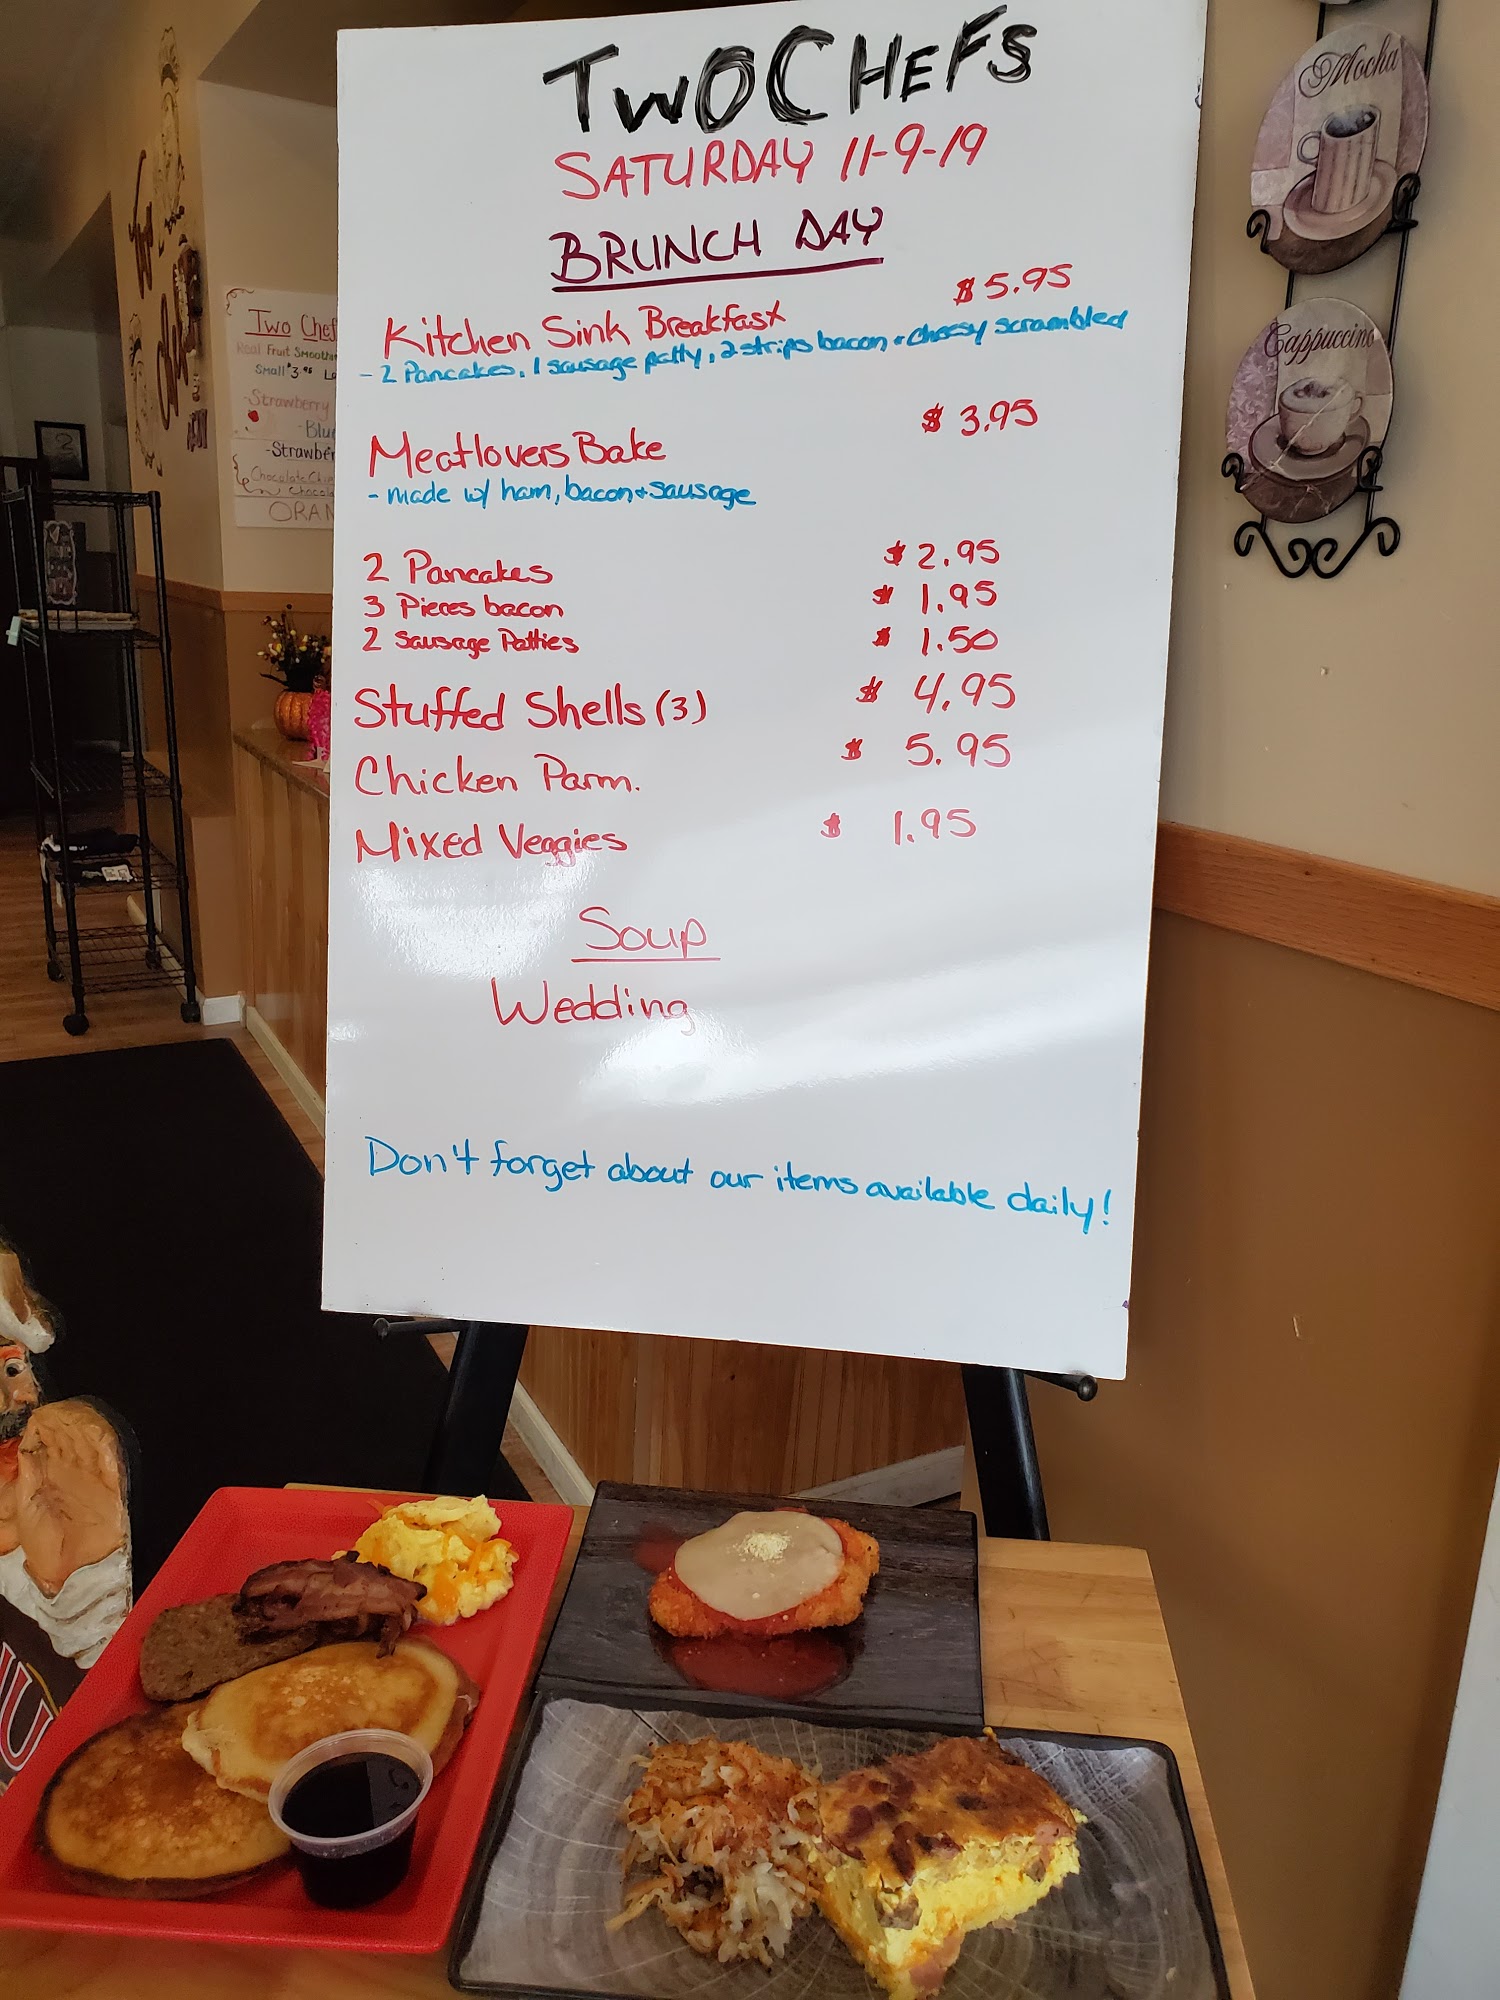 TWO CHEFS
SATURDAY 11-9-19
BRUNCH DAY
Kitchen Sink Breakfast $5.95
- 2 Pancakes, 1 sausage patty, 2 strips bacon + cheesy scrambled
Meatlovers Bake $3.95
- made w/ ham, bacon + sausage
2 Pancakes $2.95
3 Pieces bacon $1.95
2 Sausage Patties $1.50
Stuffed Shells (3) $4.95
Chicken Parm. $5.95
Mixed Veggies $1.95
Soup
Wedding
Don't forget about our items available daily!
Two Chef
Real Fruit Smooth
Small $3.95 La
-Strawberry
-Blue
-Strawber
Chocolate Chip
Chocol
ORAN
Mocha
Cappuccino